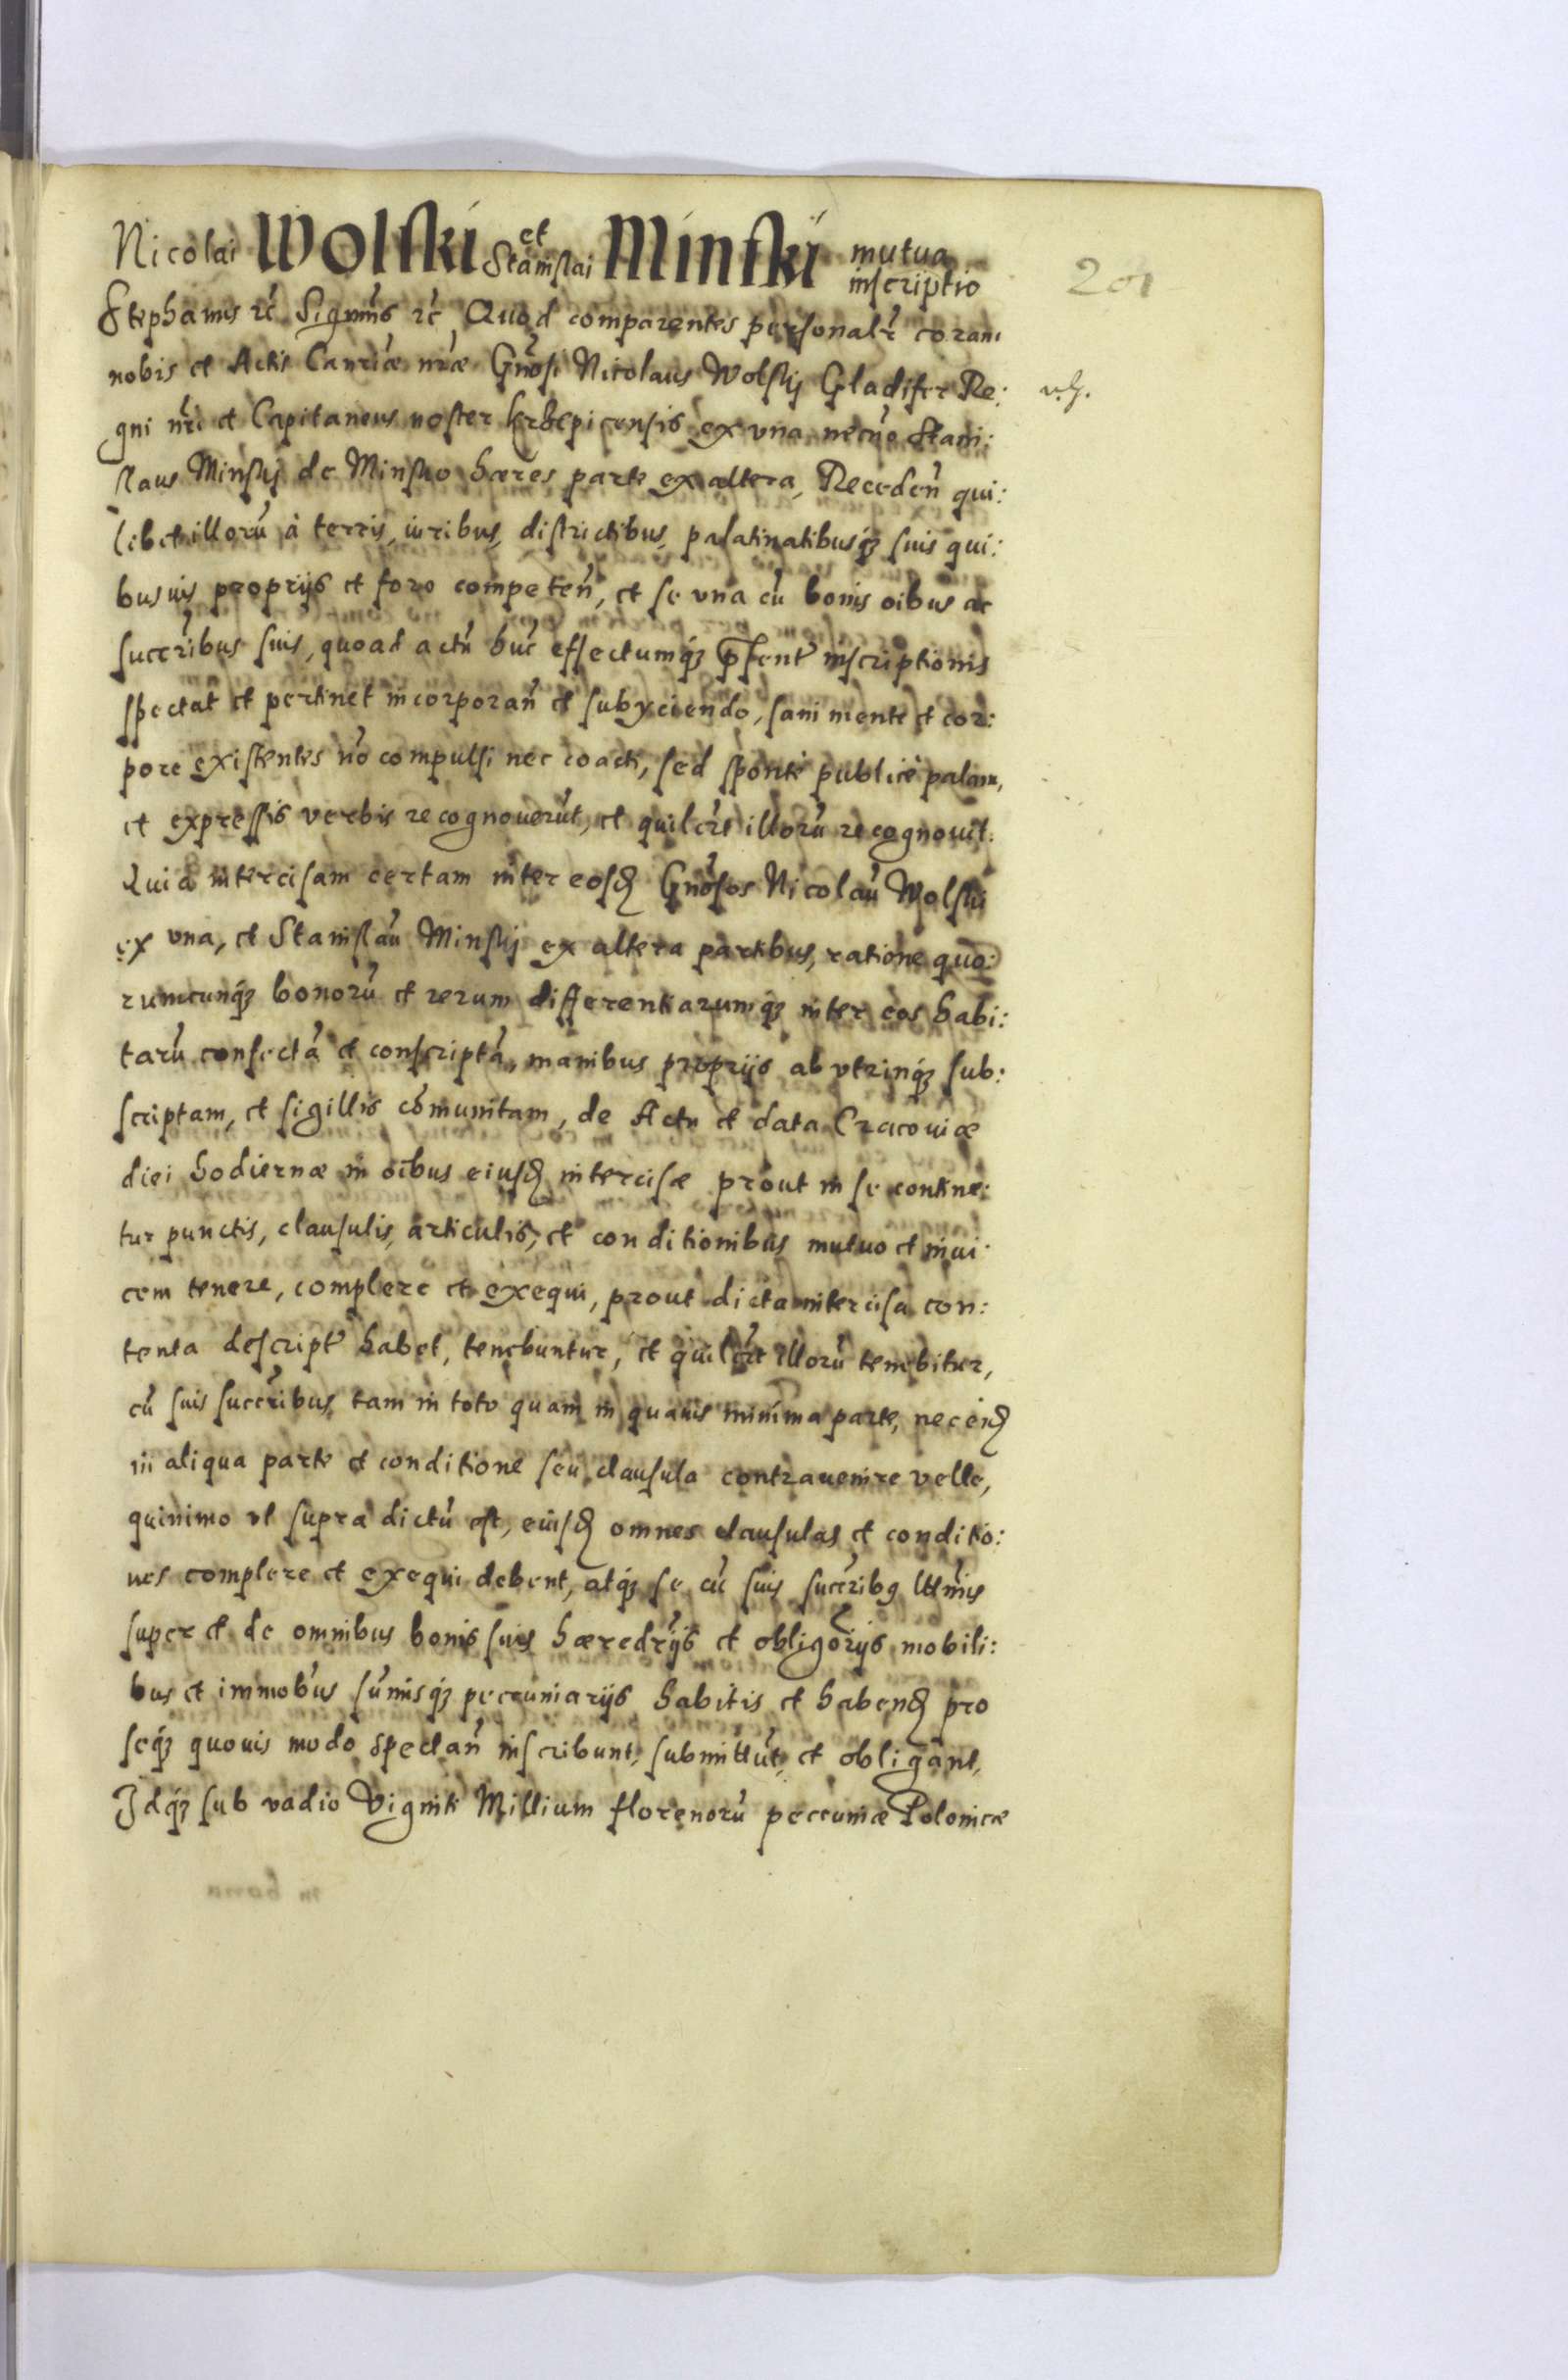 Nicolai Wolski et Stanislai Minski mutua inscriptio
201
Stephanus rc̃ Signum̃s rc̃ Quod comparentes personalr̃ coram
nobis et Actis Canr̃iæ nr̃æ Gñosi Nicolaus Wolskj Gladifer Re:
gni nr̃i et Capitaneus noster Krzepicensis ex vna, necño Stani:
slaus Minskj de Minsko hæres parte ex altera, Receden̄ qui:
libet illorū à terris, iuribus, districtibus, palatinatibusq3 suis qui:
busuis proprijs et foro competen̄, et se vna cū bonis oībus ac
succr̃ibus suis, quoad actū hūc effectumq3 p̃sent̃ inscriptionis
spectat et pertinet incorporan̄ et subyciendo, sani mente et cor:
pore existentes nō compulsi nec coacti, sed sponte publicè palam,
et expressis verbis recognouerūt, et quilr̃t illorū recognouit.
Quia intercisam certam inter eosd Gñosos Nicolaū Wolski
ex vna, et Stanislaū Minskj ex altera partibus, ratione quo:
rumcunq3 bonorū et rerum differentiarumq3 inter eos habi:
tarū confectā et conscriptā, manibus proprijs ab vtrinq3 sub:
scriptam, et sigillis cōmunitam, de Actu et data Cracouiæ
diei hodiernæ in oībus eiusd intercisæ prout in se contine:
tur punctis, clausulis, articulis, et conditionibus mutuo et inui:
cem tenere, complere et exequi, prout dicta intercisa con:
tenta descript̃ habet, tenebuntur, et quilr̃t illorū tenebitur,
cū suis succr̃ibus tam in toto quam in quauis minima parte, nec eid
in aliqua parte et conditione seu clausula contrauenire velle,
quinimo vt supra dictū est, eiusd omnes clausulas et conditio:
nes complere et exequi debent, atq3 se cū suis succr̃ibg lttm̃is
super et de omnibus bonis suis hæredr̃ijs et obligor̃ijs mobili:
bus et immob̃us sūmisq3 peccuniarijs habitis et habend pro
seq3 quouis modo spectan̄ inscribunt, submittūt, et obligant,
Idq3 sub vadio Viginti Millium florenorū peccuniæ Polonicæ